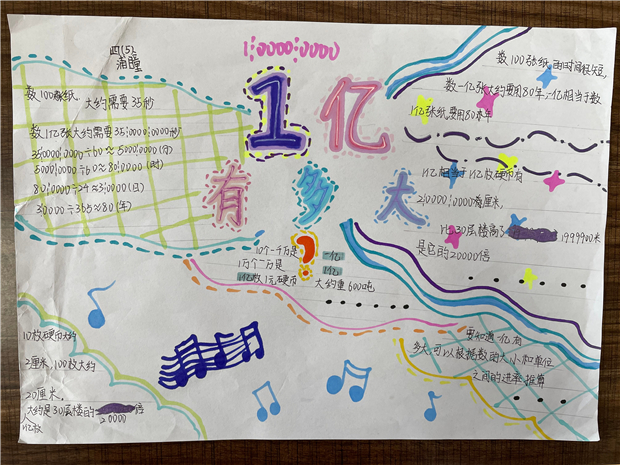 四(5)
1;0000;0000
1亿
有多大
?
数100张纸,大约需要35秒
数1亿张大约需要35;000;000秒
35;000;000÷60≈5000000(分)
5000000÷60≈80;000(时)
80;000÷24≈3;000(日)
30000÷365≈80(年)
数100张纸,的时间很短,
数一亿张大约要用80年,一亿相当于数
1亿张纸要用80年
1亿相当于1亿枚硬币有
200000;000厘米,
比30层楼高了
1999900米
是它的20000倍
10个一千万是一亿
1万个一万是1亿
1亿枚1元硬币大约重600吨
10枚硬币大约
2厘米,100枚大约
20厘米。
大约是30层楼的
20000
倍
1亿枚
要知道一亿有
多大,可以根据数的大小和单位
之间的进率推算